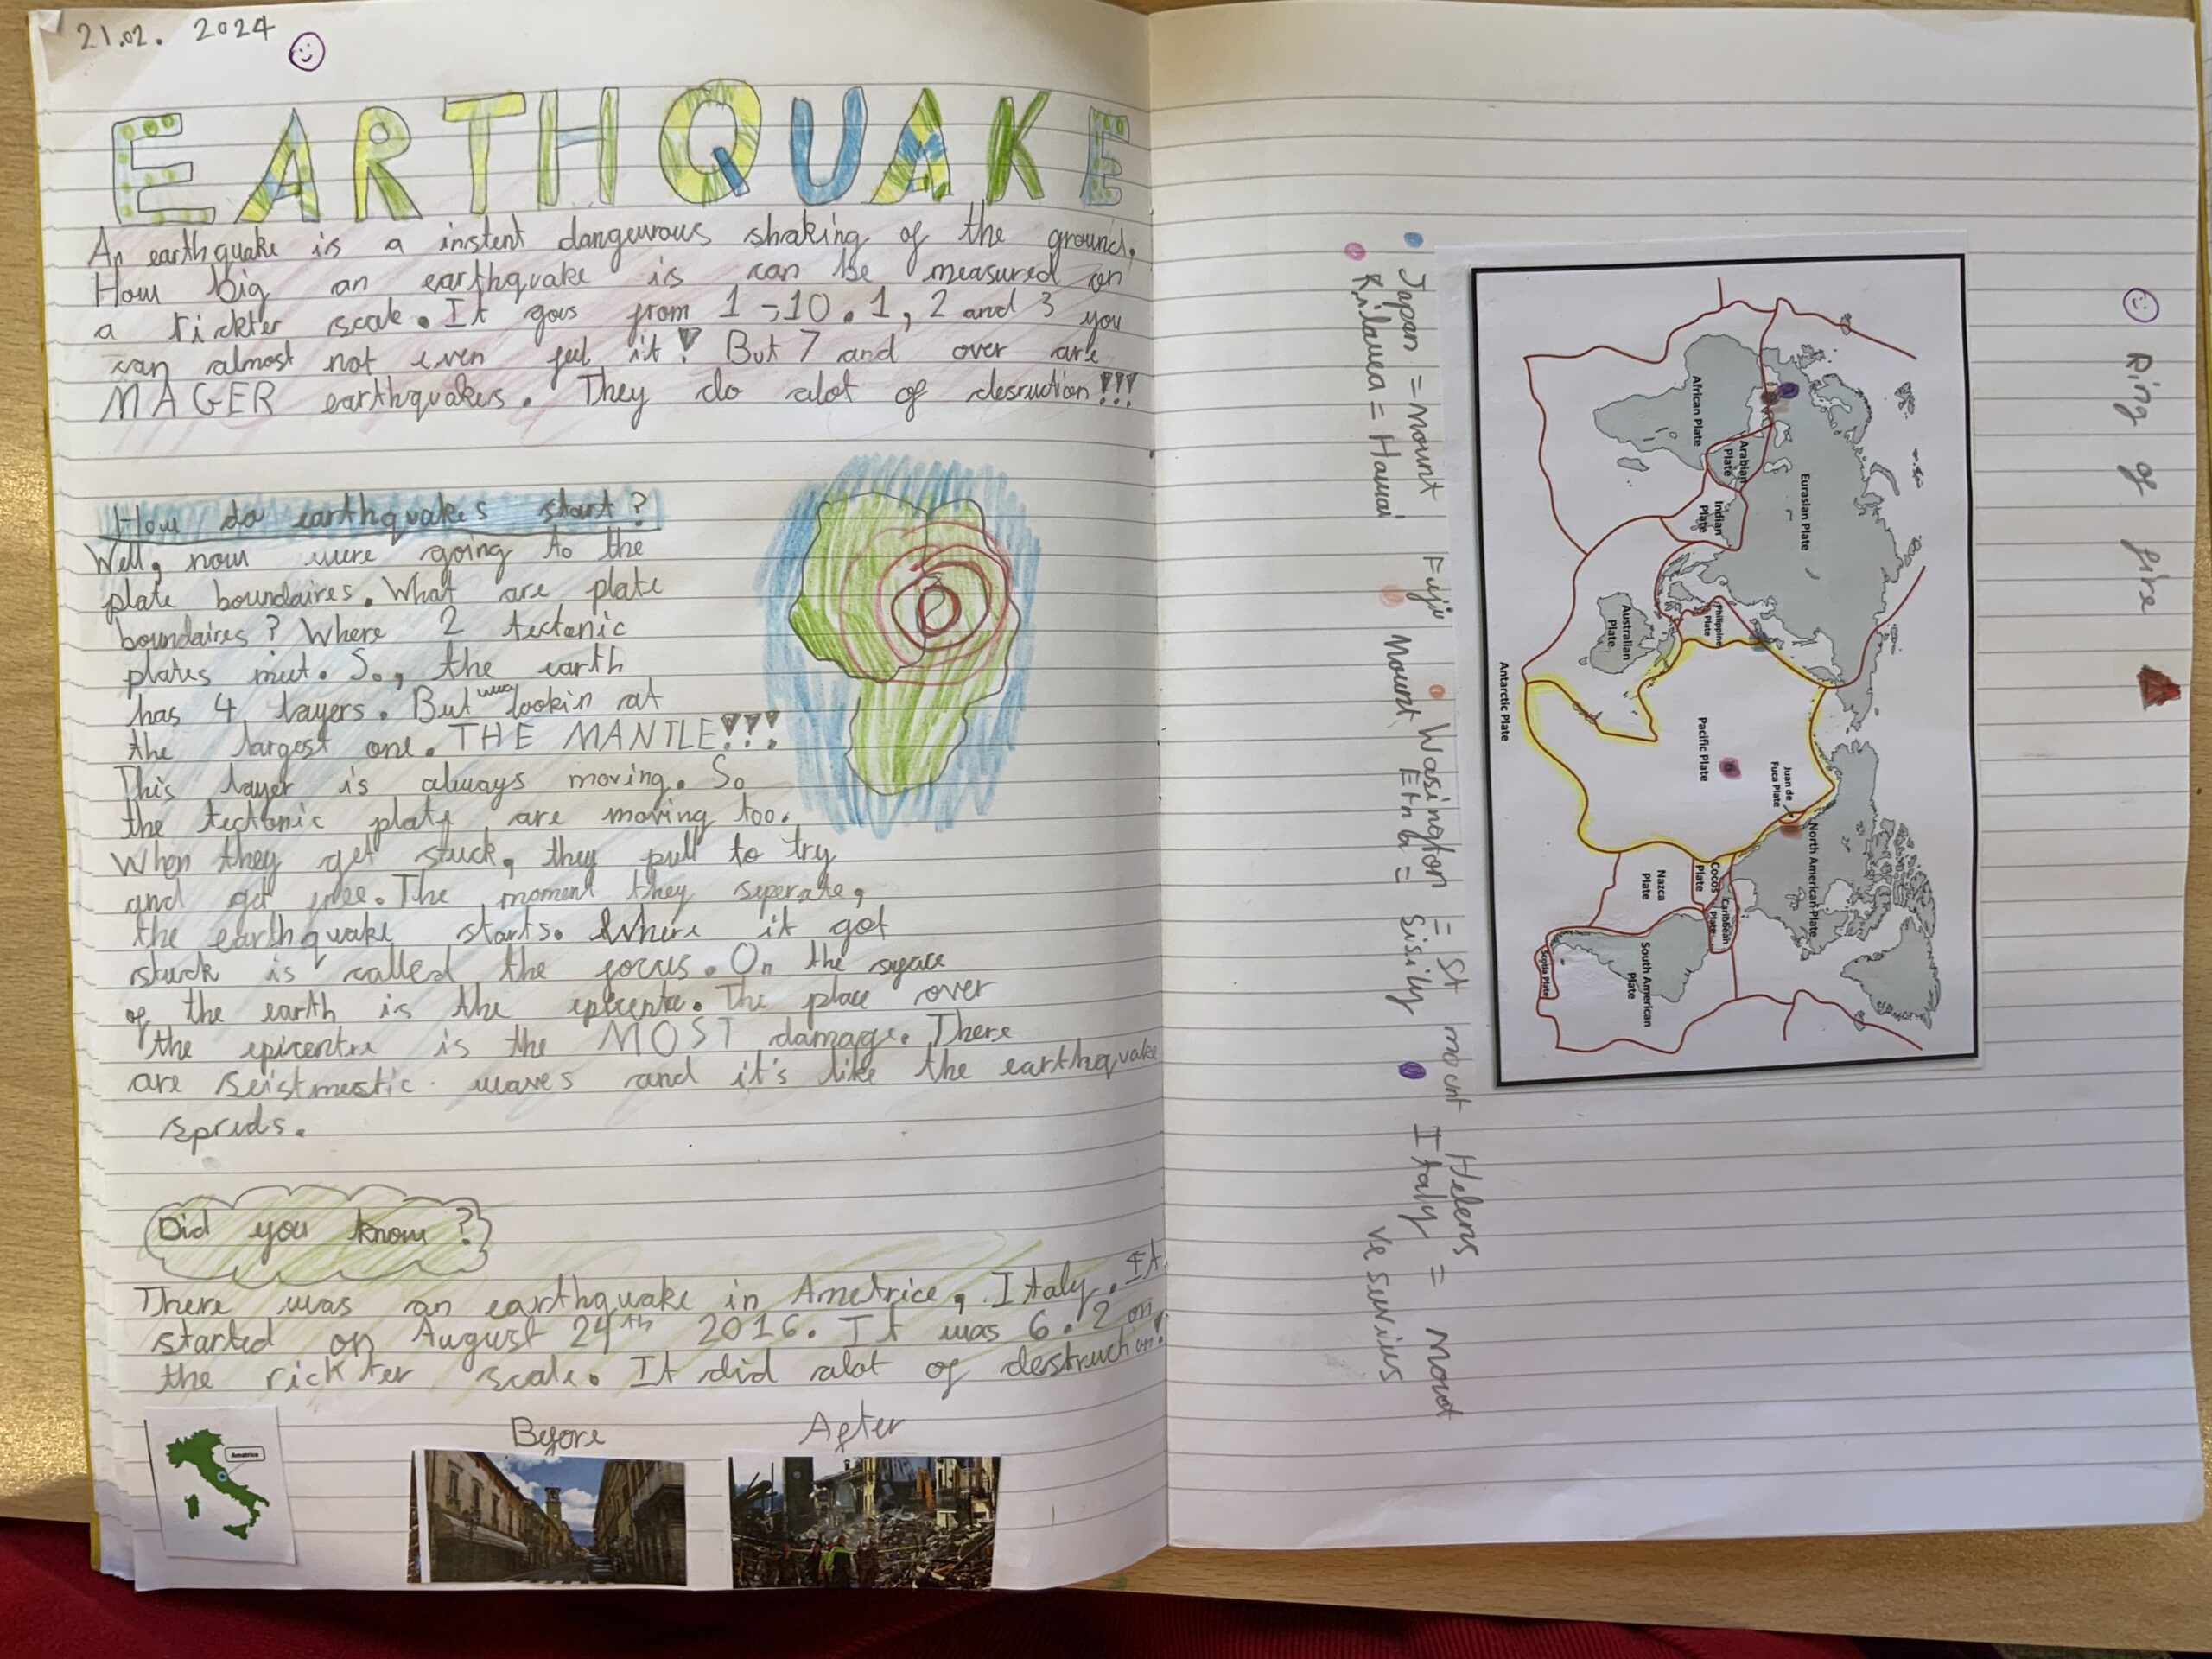 21.02. 2024
EARTHQUAKE
An earthquake is a instent dangeurous shaking of the ground.
How big an earthquake is can be measured on
a rickter scale. It gous from 1→10. 1, 2 and 3 you
can almost not even feel it! But 7 and over are
MAGER earthquakes. They do alot of desruction!!!
How do earthquakes start?
Well, now were going to the
plate boundaires. What are plate
boundaires? Where 2 tectonic
plates meet. So, the earth
has 4 layers. But were lookin at
the largest one. THE MANTLE!!!
This layer is always moving. So
the tectonic plats are moving too.
When they get stuck, they pull to try
and get free. The moment they seperate,
the earthquake starts. Where it got
stuck is called the focus. On the syace
of the earth is the epicente. The place over
the epicentre is the MOST damage. There
are seistmestic waves and it's like the earthquake
spreds.
Did you know?
There was an earthquake in Ametrice, Italy. It
started on August 24th 2016. It was 6.2 on
the rickter scale. It did alot of destruction!
Amatrice
Before
After
Ring of fire
Eurasian Plate
African Plate
Arabian Plate
Indian Plate
Philippine Plate
Australian Plate
Antarctic Plate
Pacific Plate
Juan de Fuca Plate
North American Plate
Cocos Plate
Caribbean Plate
Nazca Plate
South American Plate
Scotia Plate
Japan = mount Fuji
Wasington = St mocnt Helens
Kilauea = Hawai
Mount Etna = sisily
Italy = mount vesuvius